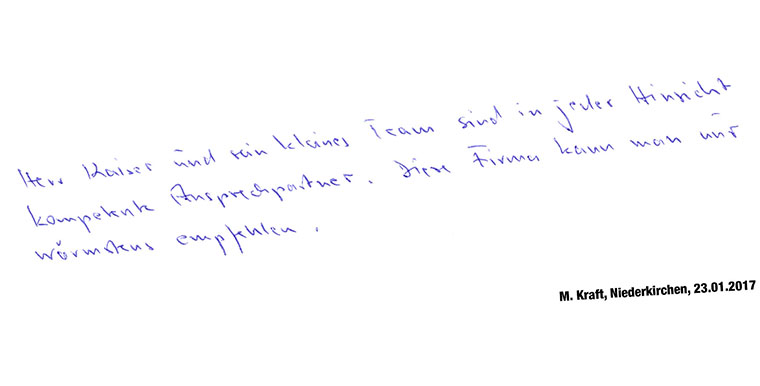 Herr Kaiser und sein kleines Team sind in jeder Hinsicht
kompetente Ansprechpartner. Diese Firma kann man nur
wärmstens empfehlen.
M. Kraft, Niederkirchen, 23.01.2017